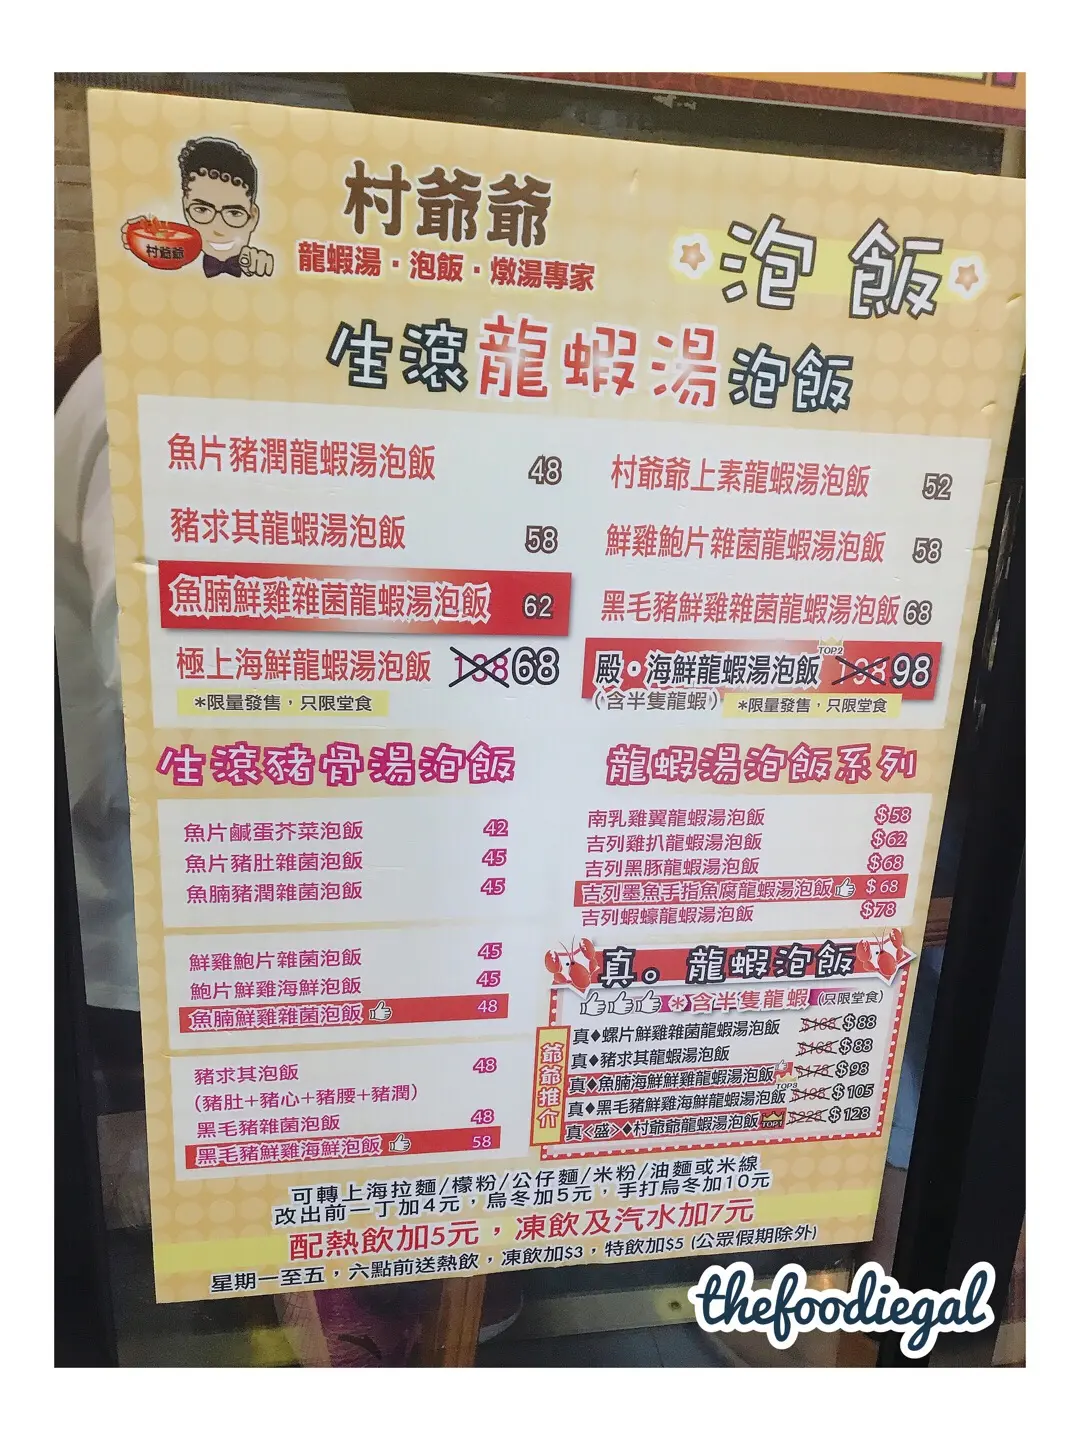 村爺爺
村爺爺
龍蝦湯・泡飯・燉湯專家
泡飯
生滾龍蝦湯泡飯
魚片豬潤龍蝦湯泡飯 48
豬求其龍蝦湯泡飯 58
魚腩鮮雞雜菌龍蝦湯泡飯 62
極上海鮮龍蝦湯泡飯 138 68
*限量發售，只限堂食
村爺爺上素龍蝦湯泡飯 52
鮮雞鮑片雜菌龍蝦湯泡飯 58
黑毛豬鮮雞雜菌龍蝦湯泡飯 68
TOP2
殿・海鮮龍蝦湯泡飯 98
(含半隻龍蝦) *限量發售，只限堂食
生滾豬骨湯泡飯
魚片鹹蛋芥菜泡飯 42
魚片豬肚雜菌泡飯 45
魚腩豬潤雜菌泡飯 45
鮮雞鮑片雜菌泡飯 45
鮑片鮮雞海鮮泡飯 45
魚腩鮮雞雜菌泡飯 48
豬求其泡飯 48
(豬肚+豬心+豬腰+豬潤)
黑毛豬雜菌泡飯 48
黑毛豬鮮雞海鮮泡飯 58
龍蝦湯泡飯系列
南乳雞翼龍蝦湯泡飯 $58
吉列雞扒龍蝦湯泡飯 $62
吉列黑豚龍蝦湯泡飯 $68
吉列墨魚手指魚腐龍蝦湯泡飯 $68
吉列蝦蠔龍蝦湯泡飯 $78
真。龍蝦泡飯
*含半隻龍蝦 (只限堂食)
爺爺推介
真◆螺片鮮雞雜菌龍蝦湯泡飯 $168 $88
真◆豬求其龍蝦湯泡飯 $168 $88
真◆魚腩海鮮鮮雞龍蝦湯泡飯 $178 $98
TOP3
真◆黑毛豬鮮雞海鮮龍蝦湯泡飯 $198 $105
真<盛>◆村爺爺龍蝦湯泡飯 TOP1 $228 $128
可轉上海拉麵/檬粉/公仔麵/米粉/油麵或米線
改出前一丁加4元，烏冬加5元，手打烏冬加10元
配熱飲加5元，凍飲及汽水加7元
星期一至五，六點前送熱飲，凍飲加$3，特飲加$5 (公眾假期除外)
thefoodiegal